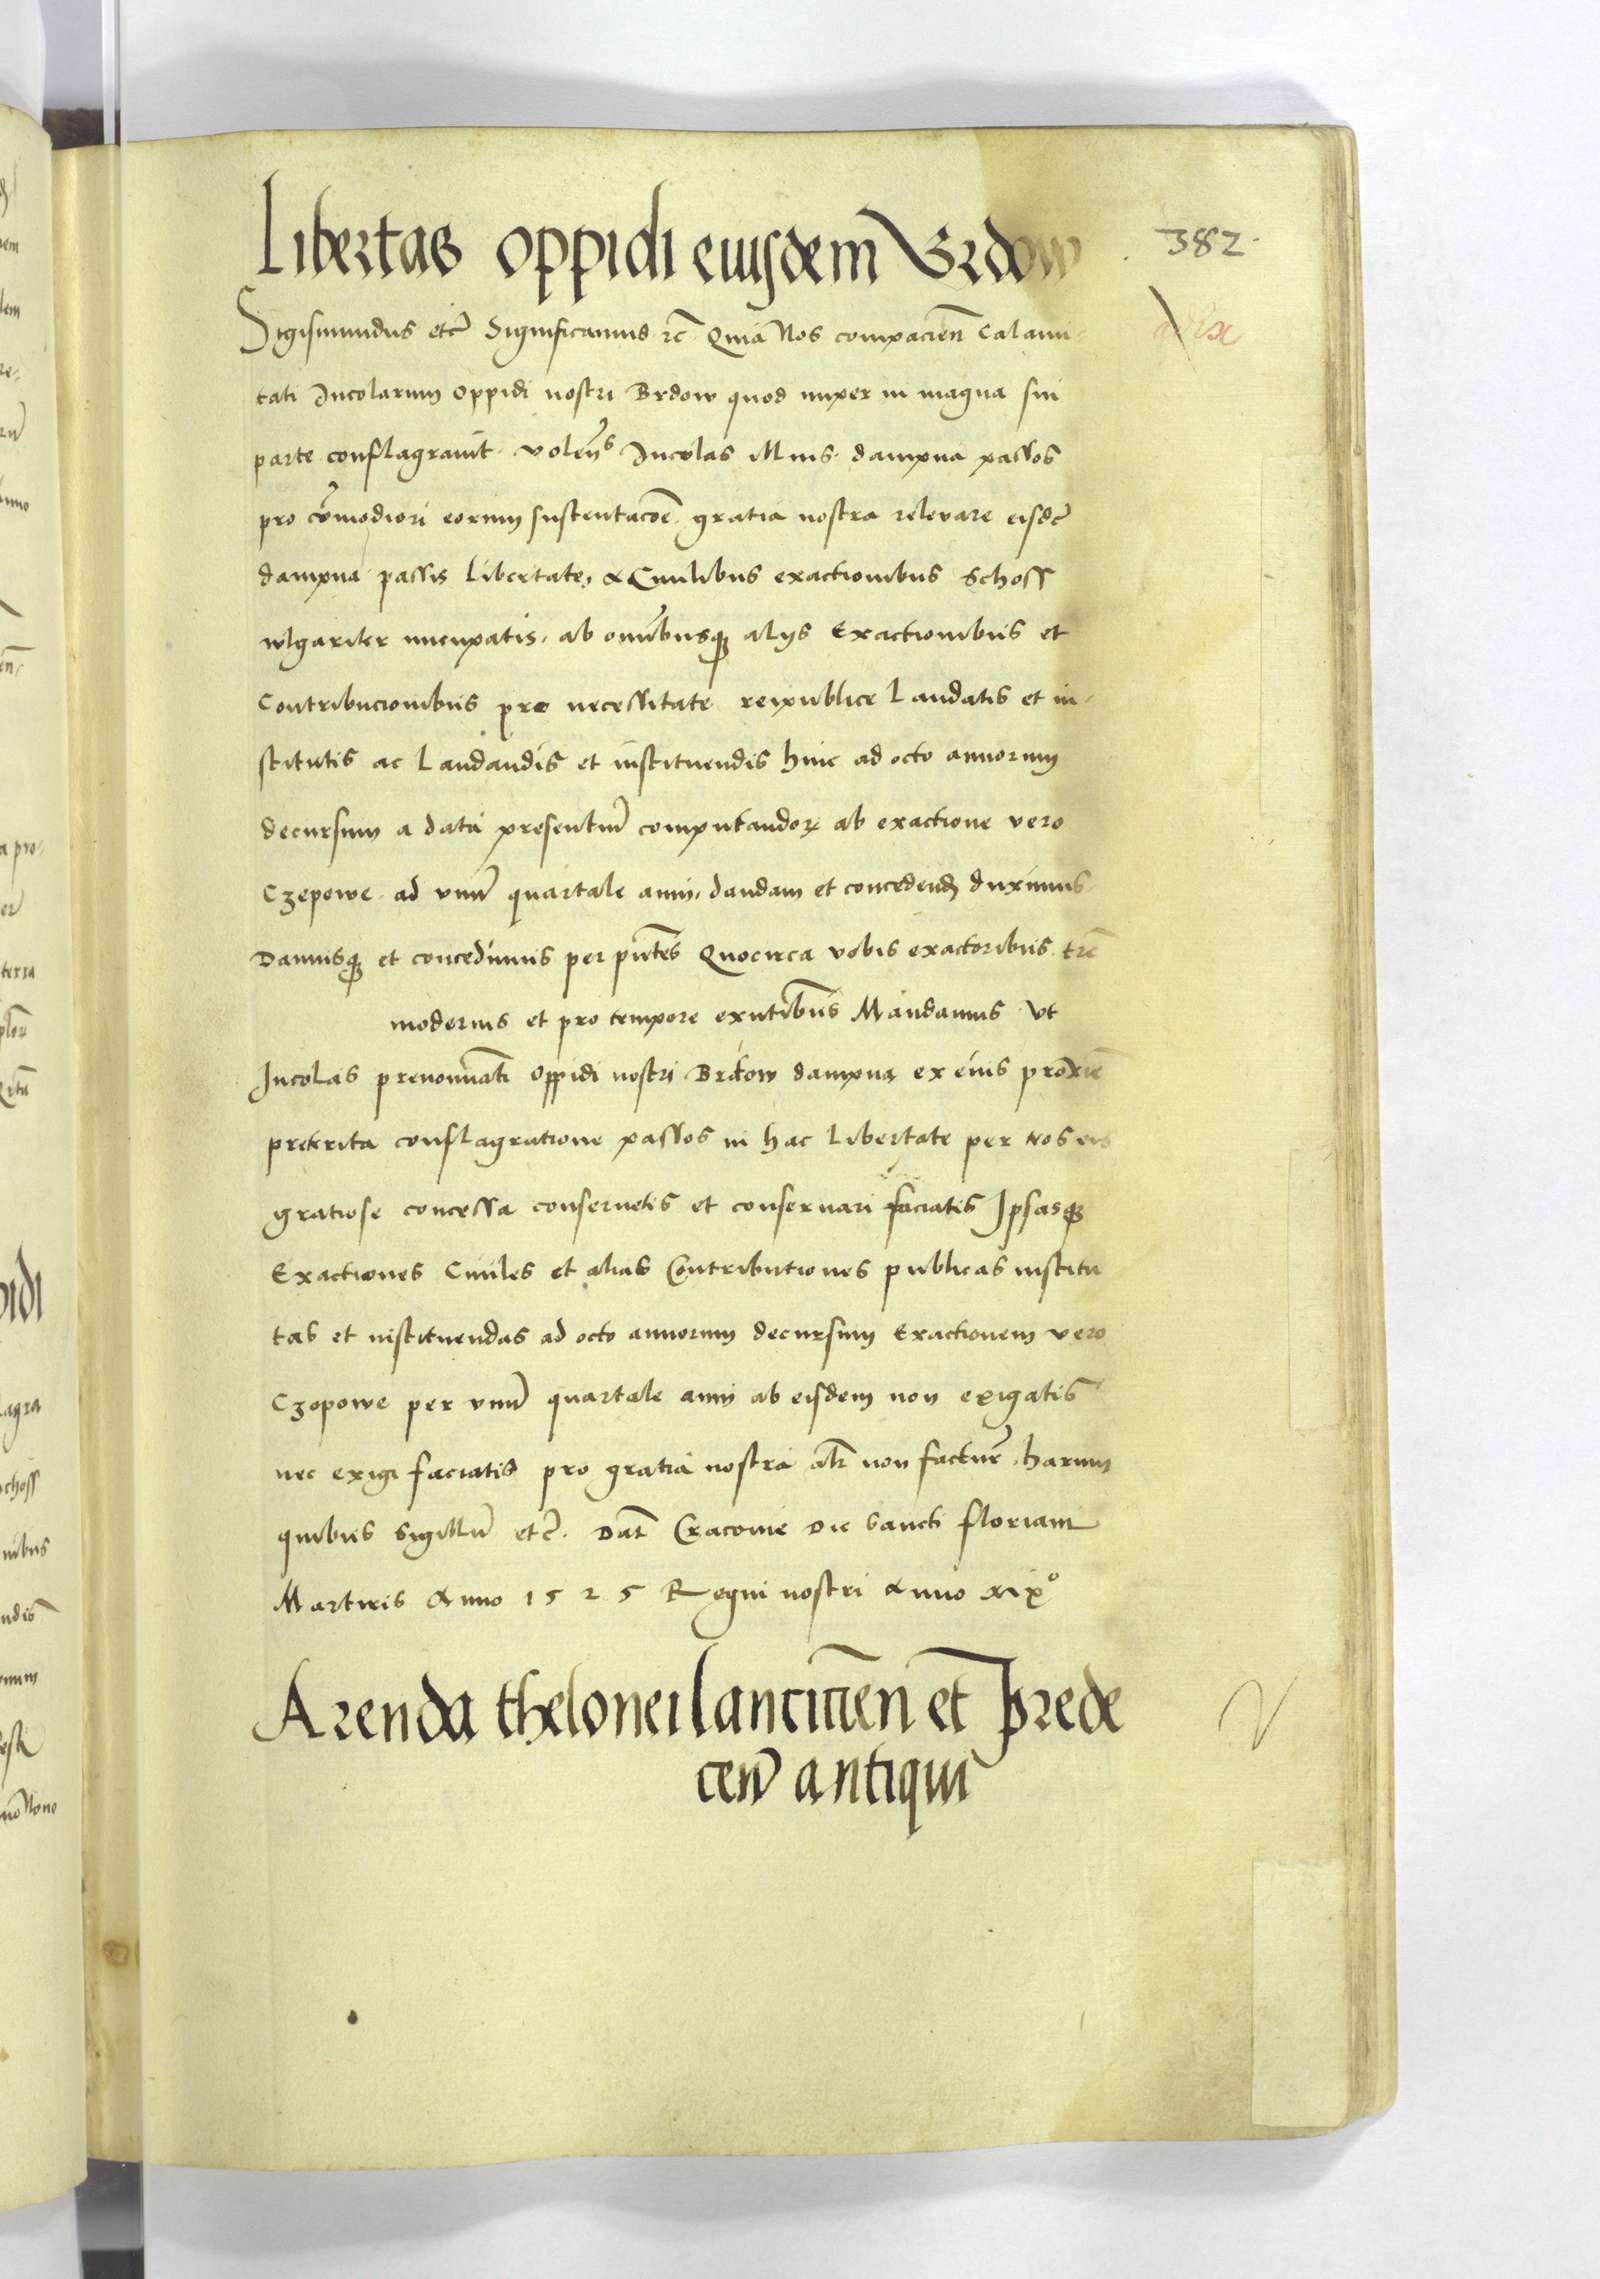 Libertas oppidi eiusdem Brdow
382.
Sigismundus etc̃ Significamus rc̃ Quia Nos compacien̄ Calami-
tati Incolarum oppidi nostri Brdow quod nuper in magna sui
parte conflagravit. volen̄s Incolas illius dampna passos
pro cōmodiori eorum sustentacōe gratia nostra relevare eisdē
dampna passis Libertatē a Civilibus exactionibus Schoss
wlgariter nuncupatis. ab omībusq̨ alijs Exactionibus et
Contribucionibus pro necessitate reipublice Laudatis et in-
stitutis ac Laudandis et instituendis hinc ad octo annorum
decursum a data presentiū computandoꝝ ab exactione vero
Czepowe. ad vnū quartale anni, dandam et concedendꝫ duximus.
Damusq̨ et concedimus per pn̄tes Quocirca vobis exactoribus trē
modernis et pro tempore exn̄tibus Mandamus Vt
Incolas prenominati oppidi nostri Brdow dampna ex eius proxīe
preterita conflagratione passos in hac Libertate per nos eis
gratiose concessa conservetis et conservari faciatis Ipsasq̨
Exactiones Civiles et alias Contributiones publicas institu
tas et instituendas ad octo annorum decursum Exactionem vero
Czopowe per vnū quartale anni ab eisdem non exigatis
nec exigi faciatis pro gratia nostra alr̄ non facturj. harum
quibus sigillū etc̃. Dat̄ Cracovie Die Sancti Floriani
Martiris Anno 1525 Regni nostri Anno xix°
Arenda thelonei Lancicien̄ et Prede
cen̄ antiqui